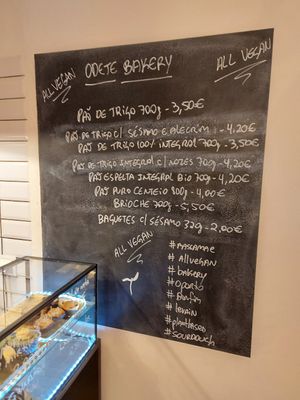 ODETE BAKERY
ALL VEGAN
ALL VEGAN
PÃO DE TRIGO 700g - 3,50€
PÃO DE TRIGO C/ SÉSAMO E ALECRIM - 4,20€
PÃO DE TRIGO 100% INTEGRAL 700g - 3,50€
PÃO DE TRIGO INTEGRAL C/ NOZES 700g - 4,20€
PÃO ESPELTA INTEGRAL BIO 700g - 4,20€
PÃO PURO CENTEIO 800g - 4,00€
BRIOCHE 700g - 5,50€
BAGUETES C/ SÉSAMO 320g - 2,00€
ALL VEGAN
# MASSAMÃE
# ALLVEGAN
# BAKERY
# OPORTO
# BOLHÃO
# LEVAIN
# PLANTBASED
# SOURDOUGH